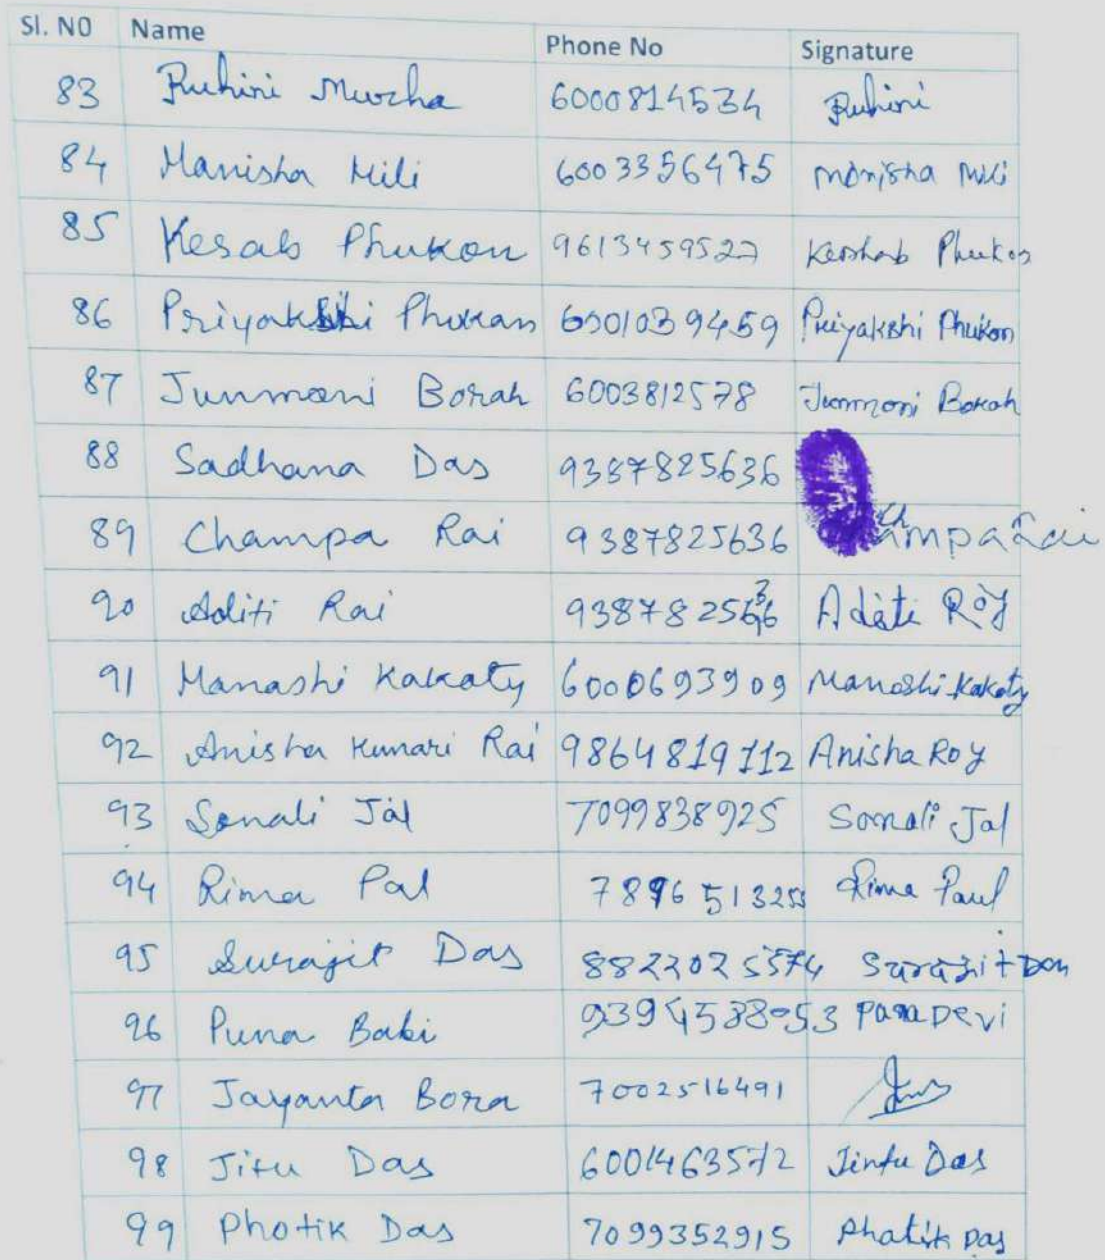 Sl. NO Name Phone No Signature
83 Ruhini Murha 6000814534 Ruhini
84 Manisha Mili 6003356475 Monisha Mili
85 Kesab Phukon 9613459527 Keshab Phukon
86 Priyakshi Phukan 6001039459 Priyakshi Phukon
87 Junmoni Borah 6003812578 Junmoni Borah
88 Sadhana Das 9387825636
89 Champa Rai 9387825636 Champa Rai
90 Aditi Rai 9387825636 Aditi Roy
91 Manashi Kakoty 6000693909 Manashi Kakoty
92 Anisha Kumari Rai 9864819112 Anisha Roy
93 Sonali Jal 7099838925 Sonali Jal
94 Rima Pal Rima Paul
95 Surajit Das 8822025574 Surajit Das
96 Puna Babi Devi
97 Jayanta Bora 7002516491
98 Jitu Das 6001463572 Jintu Das
99 Photik Das 7099352915 Phatik Das